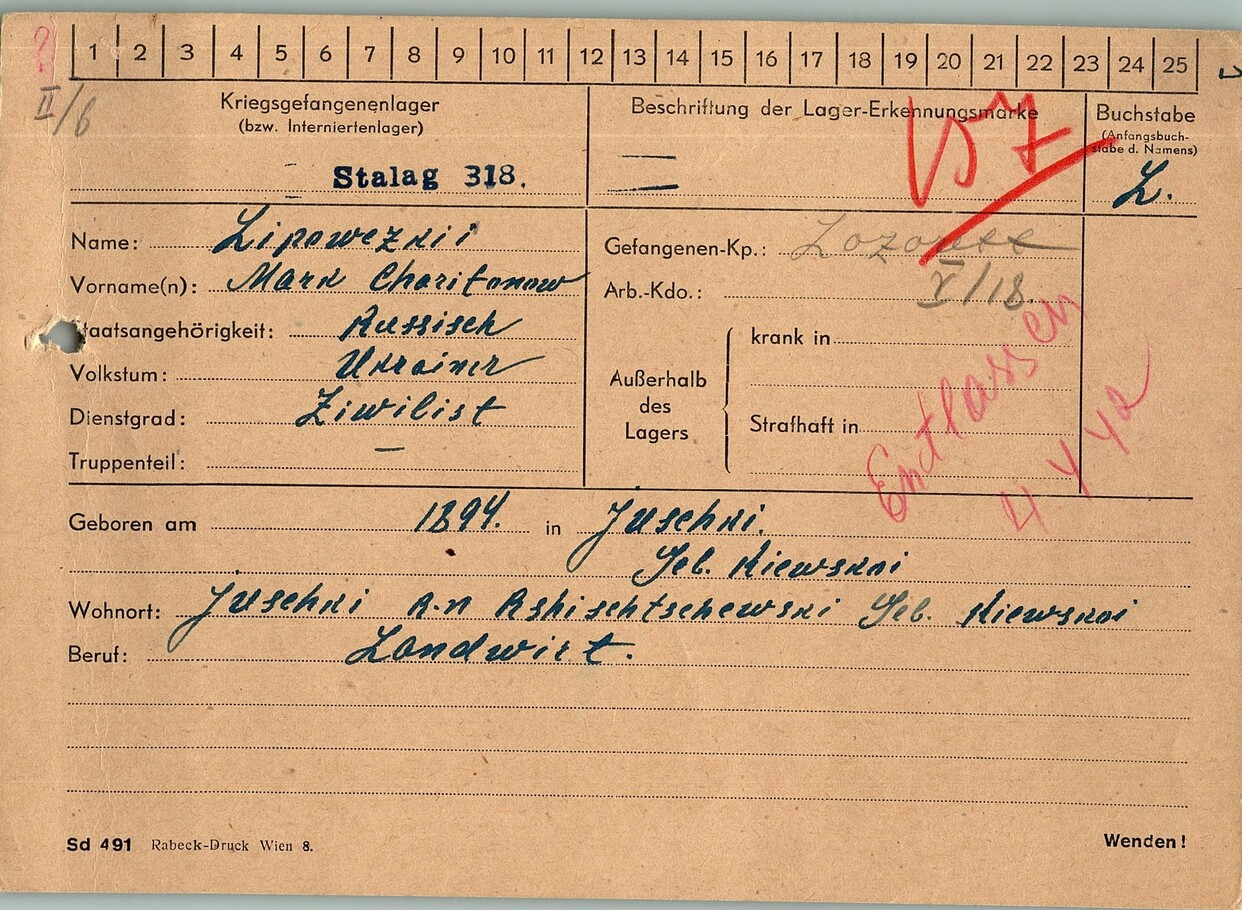 1 2 3 4 5 6 7 8 9 10 11 12 13 14 15 16 17 18 19 20 21 22 23 24 25
II/6
Kriegsgefangenenlager
(bzw. Interniertenlager)
Stalag 318.
Beschriftung der Lager-Erkennungsmarke
Buchstabe
(Anfangsbuch-
stabe d. Namens)
L.
Name: Lipowezkii
Vorname(n): Mark Charitonow
Staatsangehörigkeit: Russisch
Volkstum: Ukrainer
Dienstgrad: Ziwilist
Truppenteil: —
Gefangenen-Kp.: Lazarett
Arb.-Kdo.: V/18.
Außerhalb
des
Lagers
krank in
Strafhaft in
Entlassen
4 4 42
Geboren am 1894. in Juschki.
Geb. Kiewskoi
Wohnort: Juschki R-n Rshischtschewski Geb. Kiewskoi
Beruf: Landwirt.
Sd 491 Rabeck-Druck Wien 8.
Wenden!